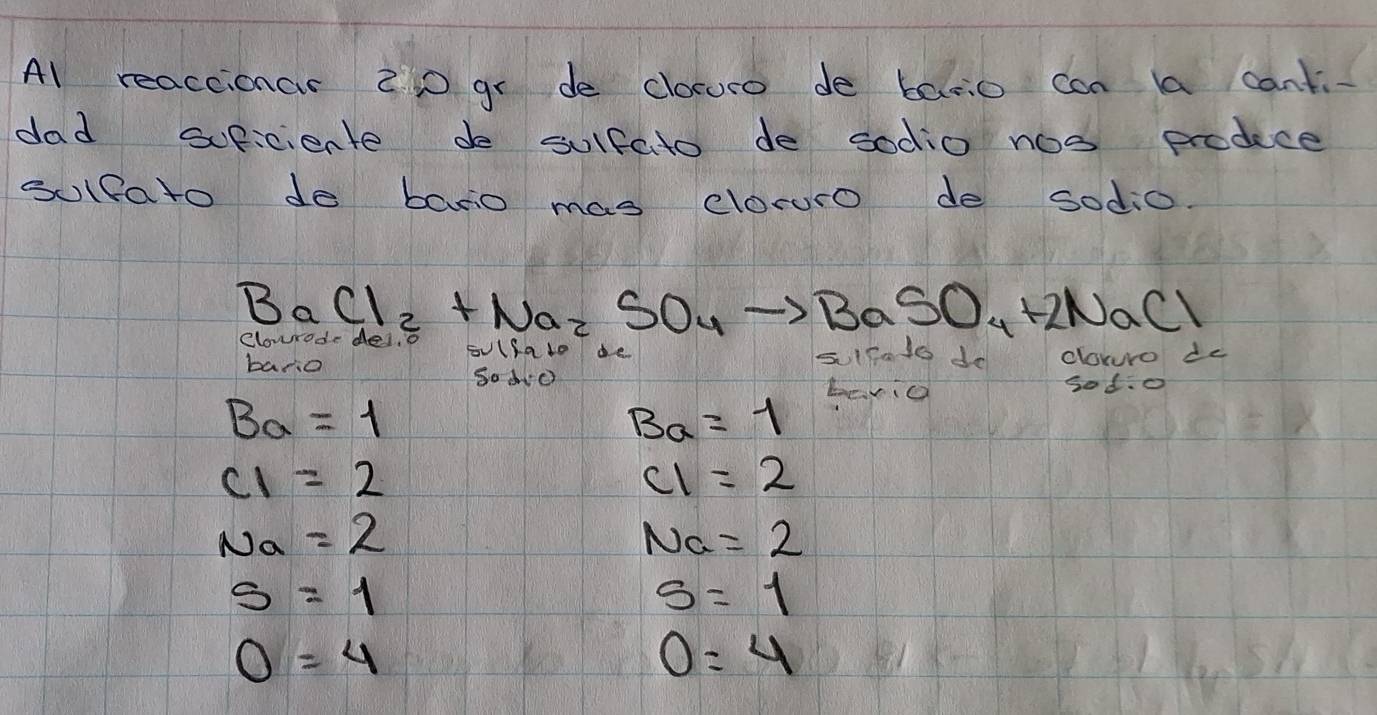 Al reaccionar 2.0 gr de cloruro de bario con la canti-
dad suficiente de sulfato de sodio nos produce
sulfato de bario mas cloruro de sodio.
BaCl₂ + Na₂ SO₄ → BaSO₄ + 2NaCl
sulfato de sulfato de cloruro de
bario sodio bario sodio
Ba = 1 Ba = 1
Cl = 2 Cl = 2
Na = 2 Na = 2
S = 1 S = 1
O = 4 O = 4